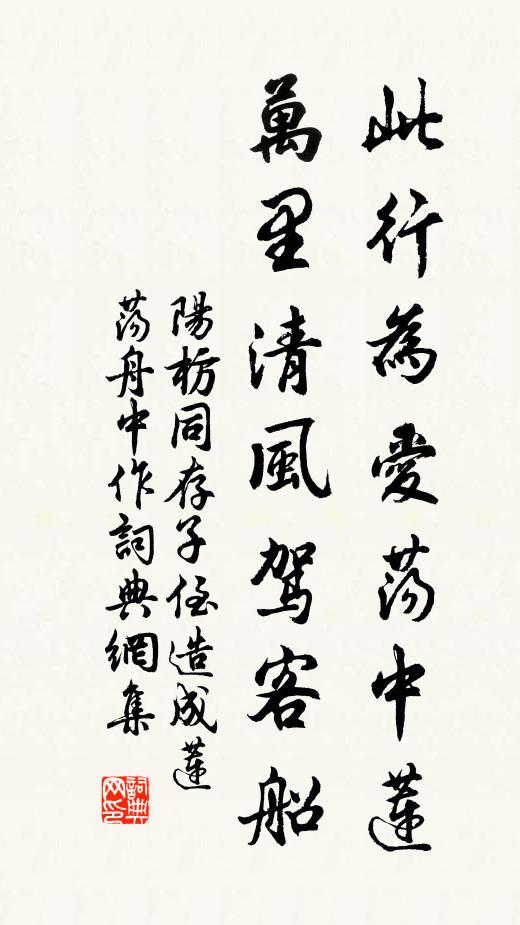 此行為愛荡中蓮
萬里清風駕客船
陽枋同存子侄造成蓮
荡舟中作詞典網集
詞典網印